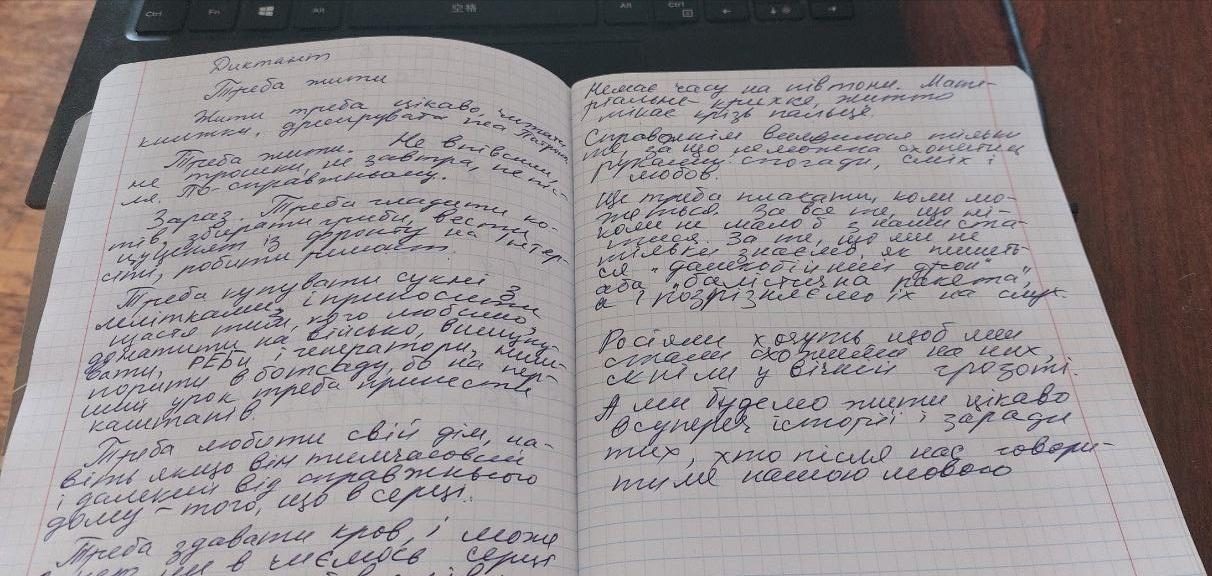 Ctrl
Fn
Alt
空格
Alt
Ctrl
Диктант
Треба жити
Жити треба цікаво, читати
книжки, дрейфувати на Патрона
Треба жити. Не впівсили,
не трошки, не завтра, не піс-
ля. По-справжньому.
Зараз. Треба гладити ко-
тів, збирати гриби, вести
цуценят із фронту на Інтер-
сіті, робити ремонт.
Треba купувати сукні з
лелітками, і приносити
щастя тим, кого любимо,
донатити на військо,
вати, РЕБи і генератори,
в ботсаду, бо на пер-
ший урок треба принести
каштанів
Треба любити свій дім, на-
віть якщо він тимчасовий
і далекий від справжнього
дому - того, що в серці.
Треба здавати кров, і може
в чиємось серці
Немає часу на півтони. Мате-
ріальне крихке, життя
тікає крізь пальці.
Справжнім виявилося тільки
те, за що неможна схопитись
руками: спогади, сміх і
любов.
Ще треба плакати, коли мо-
жеться. За все те, що ні-
коли не мало б з нами ста-
тися. За те, що ми не
тільки знаємо, як пишеть-
ся "далекобійний дрон"
або "балістична ракета",
а і розрізняємо їх на слух.
Росіяни хочуть щоб ми
стали схожими на них,
скніли у вічній грозоті.
А ми будемо жити цікаво
всупереч історії і заради
тих, хто після нас говори-
тиме нашою мовою